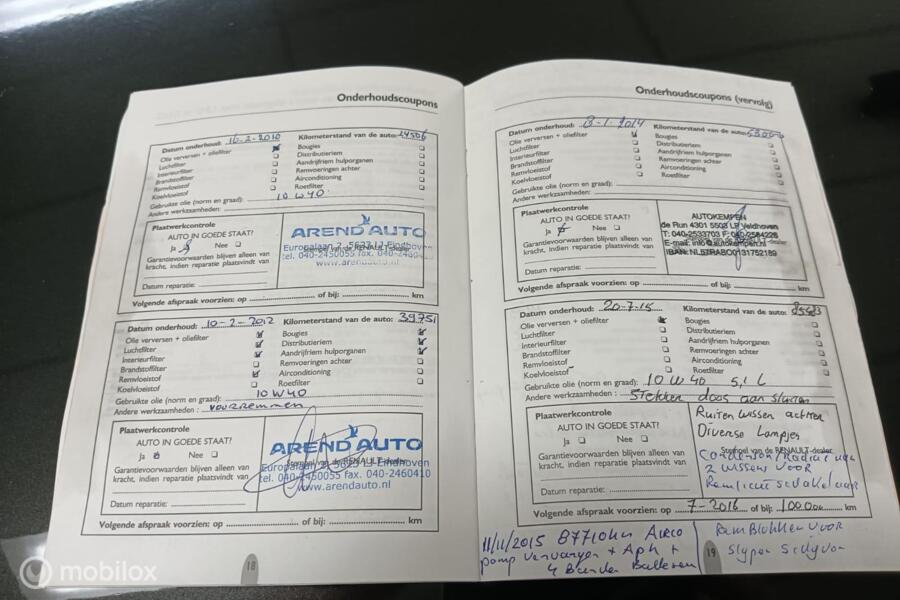 Onderhoudscoupons
Datum onderhoud: 16-2-2010 Kilometerstand van de auto: 24506
Olie verversen + oliefilter
Luchtfilter
Interieurfilter
Brandstoffilter
Remvloeistof
Koelvloeistof
Bougies
Distributieriem
Aandrijfriem hulporganen
Remvoeringen achter
Airconditioning
Roetfilter
Gebruikte olie (norm en graad): 10 W 40
Andere werkzaamheden:
Plaatwerkcontrole
AUTO IN GOEDE STAAT?
Ja Nee
Garantievoorwaarden blijven alleen van
kracht, indien reparatie plaatsvindt van
Datum reparatie:
AREND AUTO
Europalaan 2, 5623 LJ Eindhoven
tel. 040-2450055 fax. 040-2460410
www.arendauto.nl
Volgende afspraak voorzien: op of bij: km
Datum onderhoud: 10-2-2012 Kilometerstand van de auto: 39751
Olie verversen + oliefilter
Luchtfilter
Interieurfilter
Brandstoffilter
Remvloeistof
Koelvloeistof
Bougies
Distributieriem
Aandrijfriem hulporganen
Remvoeringen achter
Airconditioning
Roetfilter
Gebruikte olie (norm en graad): 10W40
Andere werkzaamheden: voorremmen
Plaatwerkcontrole
AUTO IN GOEDE STAAT?
Ja Nee
Garantievoorwaarden blijven alleen van
kracht, indien reparatie plaatsvindt van
Datum reparatie:
AREND AUTO
Stempel van de RENAULT-dealer
Europalaan 2, 5623 LJ Eindhoven
tel. 040-2450055 fax. 040-2460410
www.arendauto.nl
Volgende afspraak voorzien: op of bij: km
18
Onderhoudscoupons (vervolg)
Datum onderhoud: 8-1-2014 Kilometerstand van de auto:
Olie verversen + oliefilter
Luchtfilter
Interieurfilter
Brandstoffilter
Remvloeistof
Koelvloeistof
Bougies
Distributieriem
Aandrijfriem hulporganen
Remvoeringen achter
Airconditioning
Roetfilter
Gebruikte olie (norm en graad):
Andere werkzaamheden:
Plaatwerkcontrole
AUTO IN GOEDE STAAT?
Ja Nee
Garantievoorwaarden blijven alleen van
kracht, indien reparatie plaatsvindt van
Datum reparatie:
AUTOKEMPEN
de Run 4301 5503 LP Veldhoven
T: 040-2533703 F: 040-2584228
E-mail: info@autokempen.nl
IBAN: NL57RABO0131752189
Volgende afspraak voorzien: op of bij: km
Datum onderhoud: 20-7-15 Kilometerstand van de auto:
Olie verversen + oliefilter
Luchtfilter
Interieurfilter
Brandstoffilter
Remvloeistof
Koelvloeistof
Bougies
Distributieriem
Aandrijfriem hulporganen
Remvoeringen achter
Airconditioning
Roetfilter
Gebruikte olie (norm en graad): 10 W 40 5,1 L
Andere werkzaamheden: stekker doos aan sluiten
Plaatwerkcontrole
AUTO IN GOEDE STAAT?
Ja Nee
Garantievoorwaarden blijven alleen van
kracht, indien reparatie plaatsvindt van
Datum reparatie:
Ruiten wissen achter
Diverse Lampjes
Stempel van de RENAULT-dealer
2 wissers voor
Volgende afspraak voorzien: op 7-2016 of bij: 100.000 km
11/11/2015 87710km Airco
pomp vervangen + Apk +
4 Banden Balleren
Remblokken voor
slypen
19
mobilox